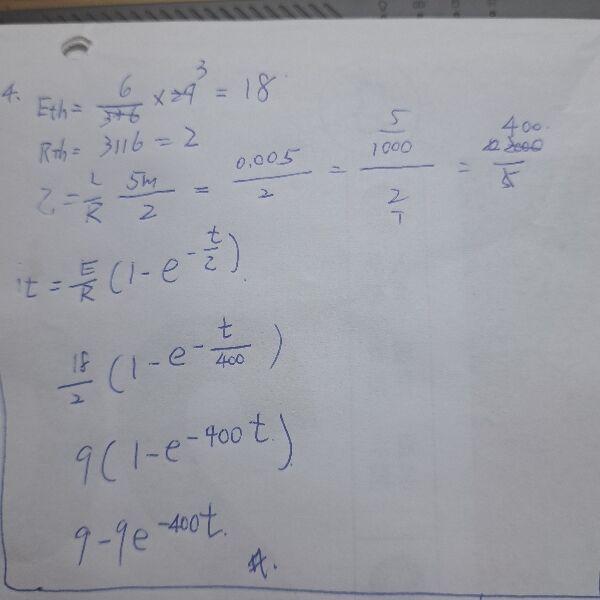 4. Eth = 6/3+6 × 29³ = 18
Rth = 3116 = 2
τ = L/R 5m/2 = 0.005/2 = 5/1000 / 2/1 = 400 2000/5
it = E/R (1 - e^-t/τ)
18/2 (1 - e^-t/400)
9(1 - e^-400t)
9 - 9e^-400t.
#.